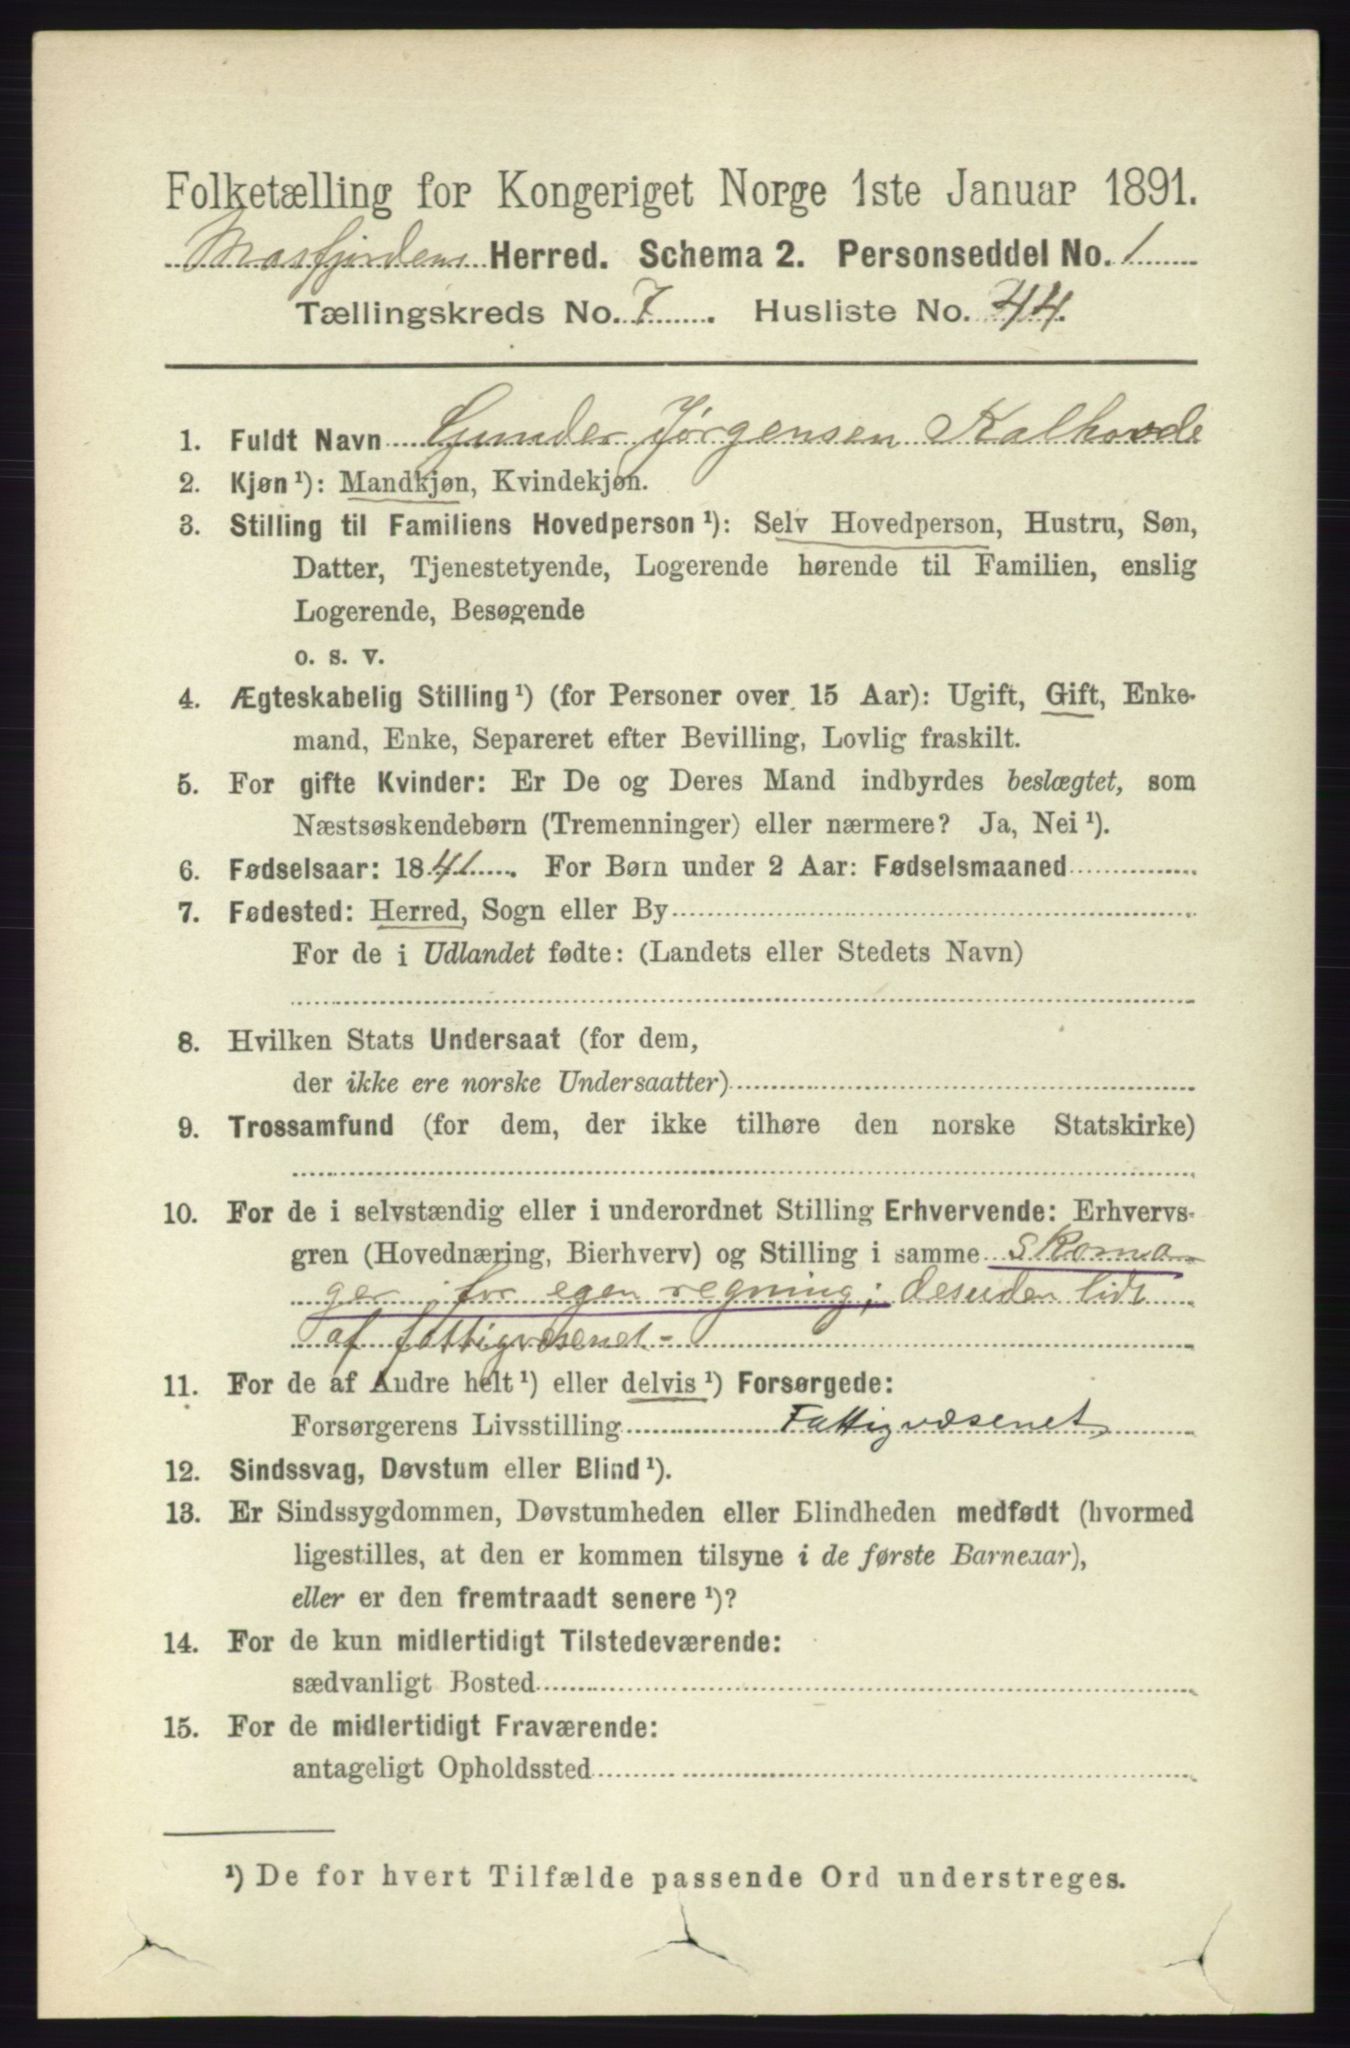 Folketælling for Kongeriget Norge 1ste Januar 1891.
Masfjordens Herred. Schema 2. Personseddel No. 1
Tællingskreds No. 7. Husliste No. 44.
1. Fuldt Navn Gunder Jørgensen Kalhovde
2. Kjøn ¹): Mandkjøn, Kvindekjøn.
3. Stilling til Familiens Hovedperson ¹): Selv Hovedperson, Hustru, Søn,
Datter, Tjenestetyende, Logerende hørende til Familien, enslig
Logerende, Besøgende
o. s. v.
4. Ægteskabelig Stilling ¹) (for Personer over 15 Aar): Ugift, Gift, Enke-
mand, Enke, Separeret efter Bevilling, Lovlig fraskilt.
5. For gifte Kvinder: Er De og Deres Mand indbyrdes beslægtet, som
Næstsøskendebørn (Tremenninger) eller nærmere? Ja, Nei ¹).
6. Fødselsaar: 1841. For Børn under 2 Aar: Fødselsmaaned
7. Fødested: Herred, Sogn eller By
For de i Udlandet fødte: (Landets eller Stedets Navn)
8. Hvilken Stats Undersaat (for dem,
der ikke ere norske Undersaatter)
9. Trossamfund (for dem, der ikke tilhøre den norske Statskirke)
10. For de i selvstændig eller i underordnet Stilling Erhvervende: Erhvervs-
gren (Hovednæring, Bierhverv) og Stilling i samme Skoma
ger for egen regning; desuden lidt
af fattigvæsenet-
11. For de af Andre helt ¹) eller delvis ¹) Forsørgede:
Forsørgerens Livsstilling Fattigvæsenet
12. Sindssvag, Døvstum eller Blind ¹).
13. Er Sindssygdommen, Døvstumheden eller Blindheden medfødt (hvormed
ligestilles, at den er kommen tilsyne i de første Barneaar),
eller er den fremtraadt senere ¹)?
14. For de kun midlertidigt Tilstedeværende:
sædvanligt Bosted
15. For de midlertidigt Fraværende:
antageligt Opholdssted
¹) De for hvert Tilfælde passende Ord understreges.